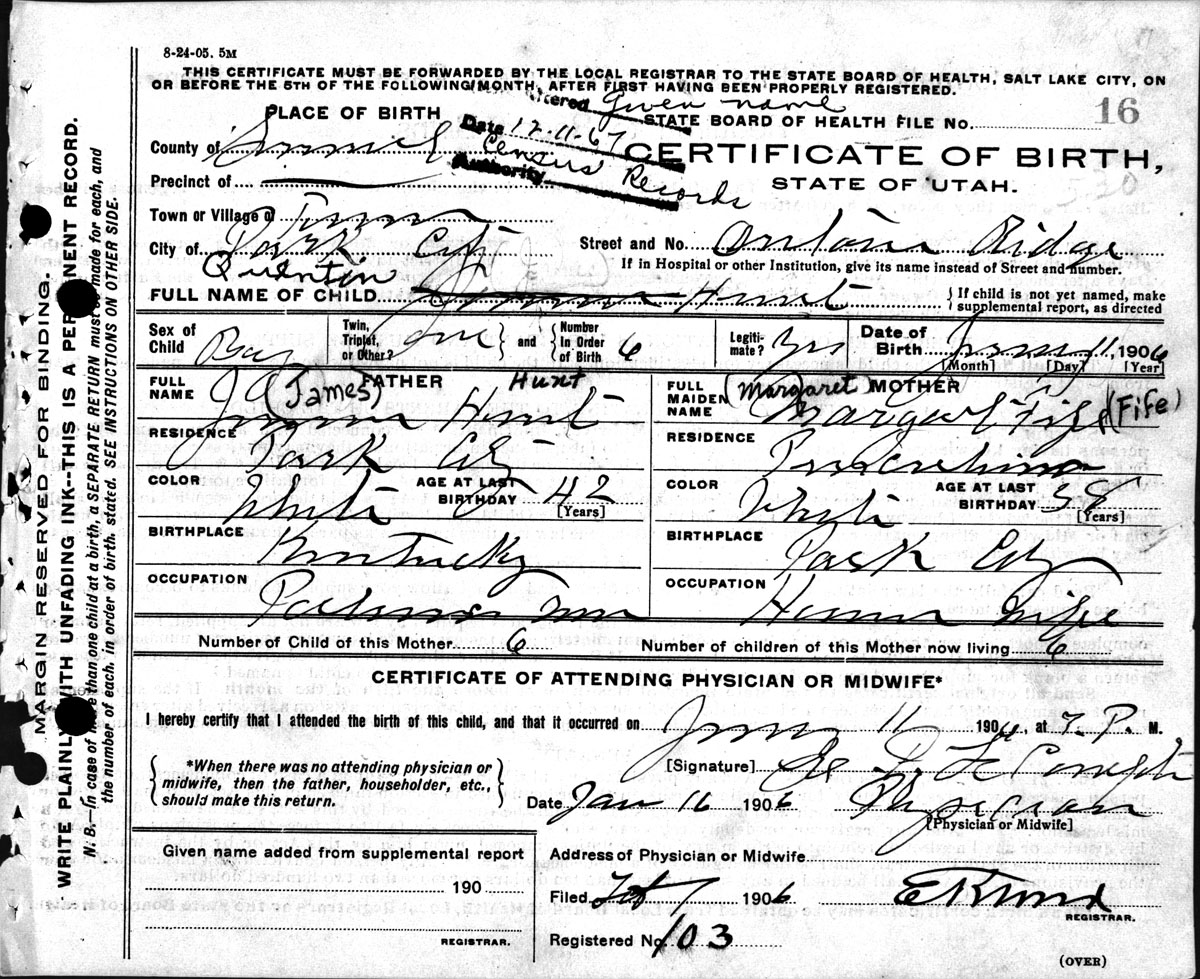 8-24-05. 5M
THIS CERTIFICATE MUST BE FORWARDED BY THE LOCAL REGISTRAR TO THE STATE BOARD OF HEALTH, SALT LAKE CITY, ON
OR BEFORE THE 5TH OF THE FOLLOWING MONTH, AFTER FIRST HAVING BEEN PROPERLY REGISTERED.
Given name
PLACE OF BIRTH
STATE BOARD OF HEALTH FILE No. 16
Date 12-11-67
County of Summit
Census Records
Authority
CERTIFICATE OF BIRTH,
Precinct of
STATE OF UTAH.
Town or Village of
City of Park City
Street and No. Ontario Ridge
If in Hospital or other Institution, give its name instead of Street and number.
Quentin
FULL NAME OF CHILD Hunt
If child is not yet named, make supplemental report, as directed
Sex of Child Boy
Twin, Triplet, or Other? One and Number In Order of Birth 6
Legitimate? Yes
Date of Birth 11, 1906
[Month] [Day] [Year]
FATHER
FULL NAME (James) Hunt
Hunt
RESIDENCE Park City
COLOR White
AGE AT LAST BIRTHDAY 42
[Years]
BIRTHPLACE Kentucky
OCCUPATION
MOTHER
FULL MAIDEN NAME (Margaret) Margaret Fife (Fife)
RESIDENCE
COLOR White
AGE AT LAST BIRTHDAY 38
[Years]
BIRTHPLACE Park City
OCCUPATION House Wife
Number of Child of this Mother 6
Number of children of this Mother now living 6
CERTIFICATE OF ATTENDING PHYSICIAN OR MIDWIFE*
I hereby certify that I attended the birth of this child, and that it occurred on 11 1906, at 7. P. M.
*When there was no attending physician or
midwife, then the father, householder, etc.,
should make this return.
[Signature]
Date Jan 16 1906 Physician
[Physician or Midwife]
Given name added from supplemental report
190
REGISTRAR.
Address of Physician or Midwife
Filed Feb 7 1906
REGISTRAR.
Registered No. 103
(OVER)
MARGIN RESERVED FOR BINDING.
WRITE PLAINLY WITH UNFADING INK--THIS IS A PERMANENT RECORD.
N. B.—In case of more than one child at a birth, a SEPARATE RETURN must be made for each, and
the number of each, in order of birth, stated. SEE INSTRUCTIONS ON OTHER SIDE.